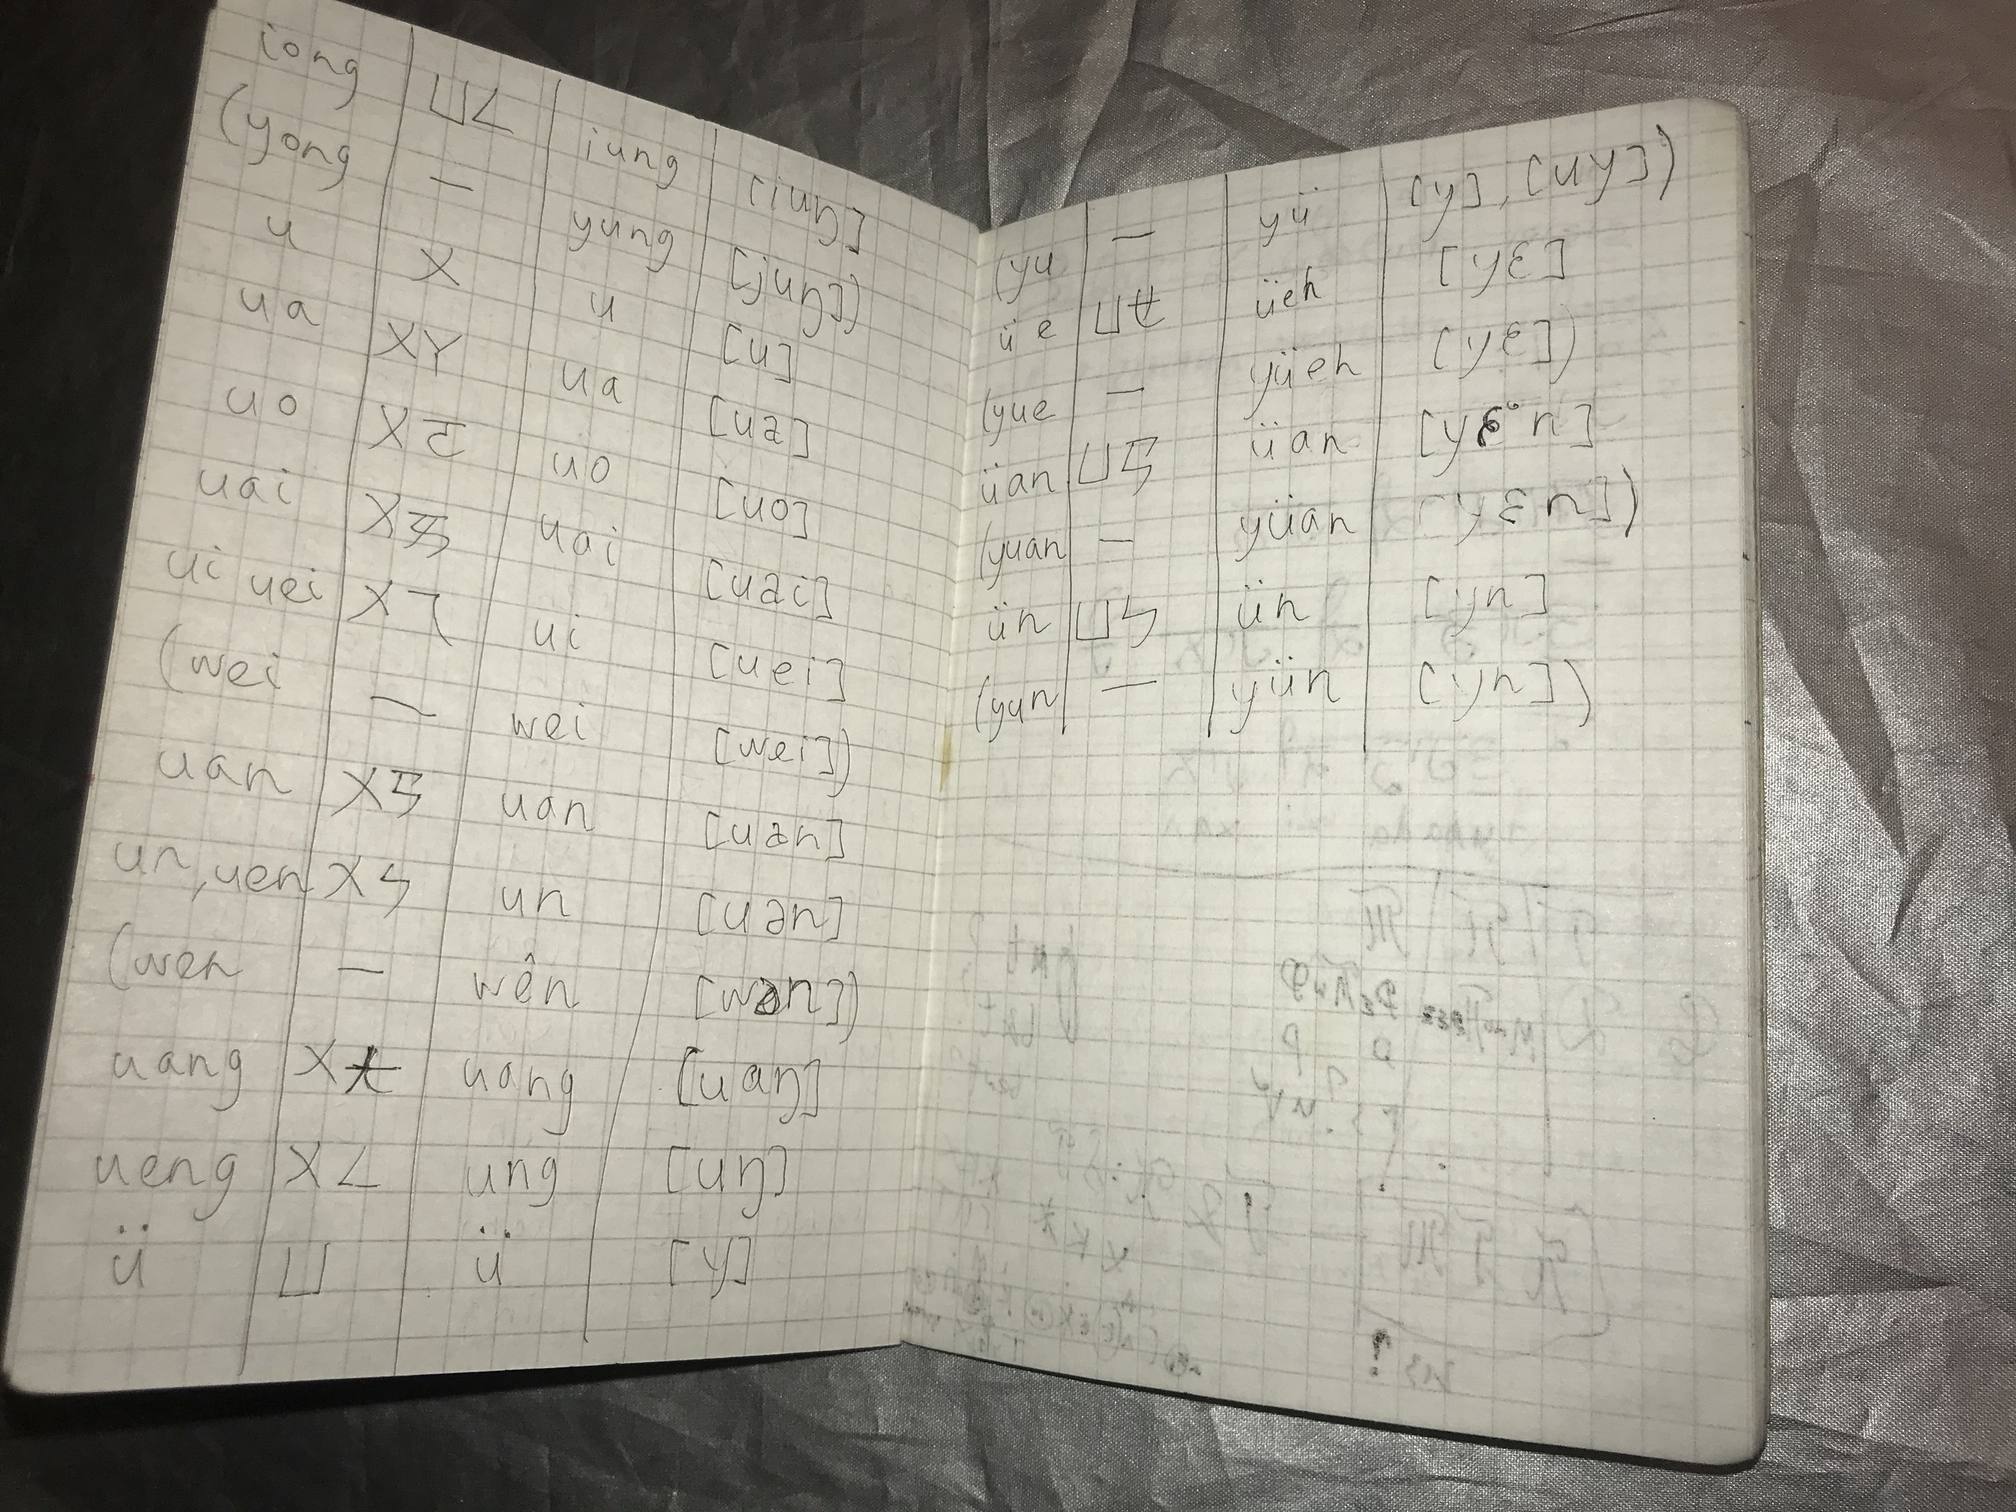 iong | ㄩㄥ | iung | [iuŋ]
(yong | — | yung | [juŋ])
u | ㄨ | u | [u]
ua | ㄨㄚ | ua | [ua]
uo | ㄨㄛ | uo | [uo]
uai | ㄨㄞ | uai | [uai]
ui uei | ㄨㄟ | ui | [uei]
(wei | — | wei | [wei])
uan | ㄨㄢ | uan | [uan]
un, uen | ㄨㄣ | un | [uən]
(wen | — | wên | [wən])
uang | ㄨㄤ | uang | [uaŋ]
ueng | ㄨㄥ | ung | [uŋ]
ü | ㄩ | ü | [y]
(yu | — | yü | [y], [ɥy])
üe | ㄩㄝ | üeh | [yɛ]
(yue | — | yüeh | [yɛ])
üan | ㄩㄢ | üan | [yɛn]
(yuan | — | yüan | [yɛn])
ün | ㄩㄣ | ün | [yn]
(yun | — | yün | [yn])